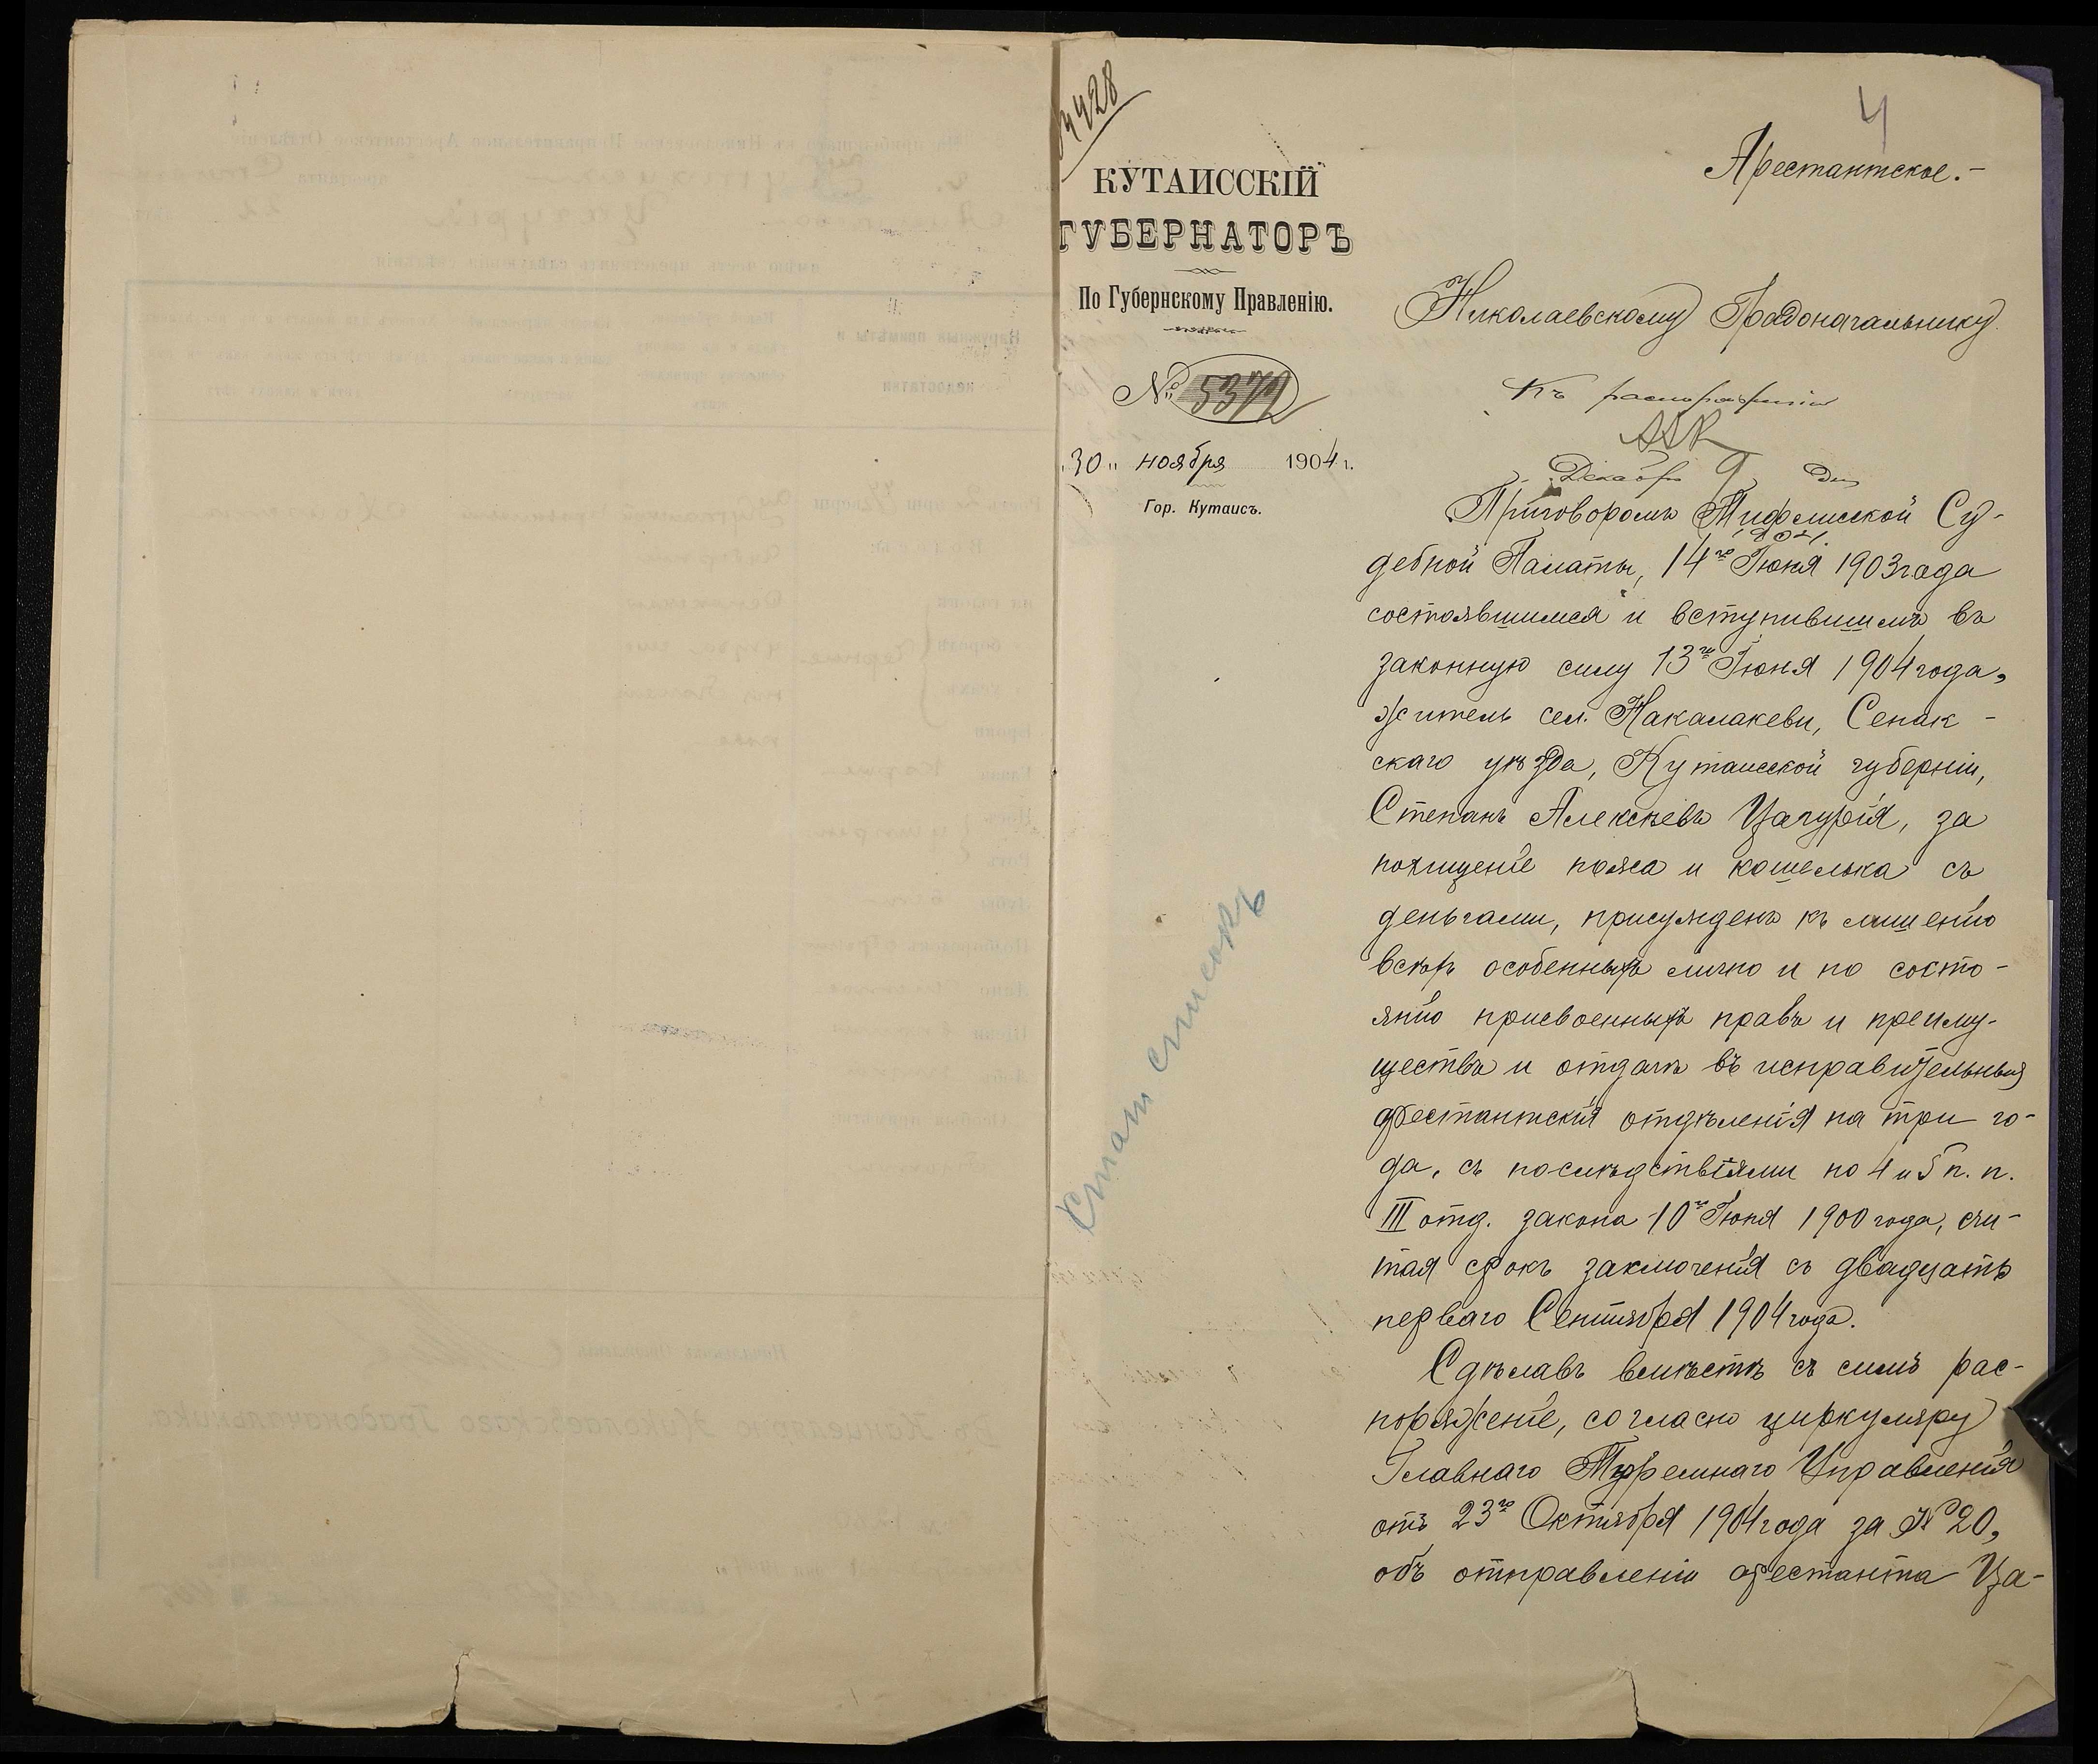 4428
4
Арестантское.-
КУТАИССКІЙ
ГУБЕРНАТОРЪ
По Губернскому Правленію.
№ 5372
"30" ноября 1904 г.
Гор. Кутаисъ.
Николаевскому Градоначальнику
Къ распоряженію
Декабря 9 дня
1904.
Стат списокъ
Приговоромъ Тифлисской Су-
дебной Палаты, 14го Іюня 1903 года
состоявшимся и вступившимъ въ
законную силу 13го Іюня 1904 года,
житель сел. Накалакеви, Сенак-
скаго уѣзда, Кутаисской губерніи,
Степанъ Алексѣевъ Цагурія, за
похищеніе пояса и кошелька съ
деньгами, присужденъ къ лишенію
всѣхъ особенныхъ лично и по состо-
янію присвоенныхъ правъ и преиму-
ществъ и отдачѣ въ исправительныя
арестантскія отдѣленія на три го-
да, съ послѣдствіями по 4 и 5 п. п.
III отд. закона 10го Іюня 1900 года, счи-
тая срокъ заключенія съ двадцать
перваго Сентября 1904 года.
Сдѣлавъ вмѣстѣ съ симъ рас-
поряженіе, согласно циркуляру
Главнаго Тюремнаго Управленія
отъ 23го Октября 1904 года за № 20,
объ отправленіи арестанта Ца-